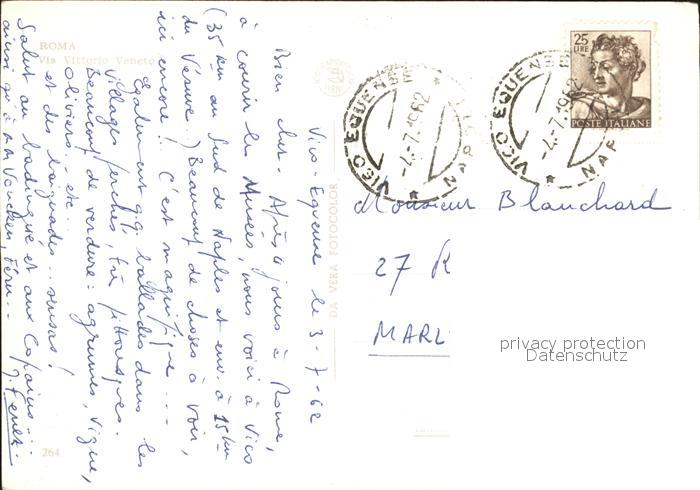 ROMA
Via Vittorio Veneto
Vico-Equense le 3-7-62
Bien cher. Après 4 jours à Rome,
à courir les Musées, nous voici à Vico
(35 km au Sud de Naples et env. à 15 km
du Vésuve.) Beaucoup de choses à voir,
ici encore !. C'est magnifique....
Egalement q.q. ballades dans les
villages perchés, très pittoresques.
Beaucoup de verdure : agrumes, vigne,
oliviers.. etc...
et des baignades.. sensas !
Salut au et aux Copains...
ainsi qu'à
264
DA VERA FOTOCOLOR
VICO EQUENSE NAP
-4.-7.1962
VICO EQUENSE NAP
-4.-7.1962
25 LIRE
POSTE ITALIANE
Monsieur Blanchard
27 R
MARL
privacy protection
Datenschutz